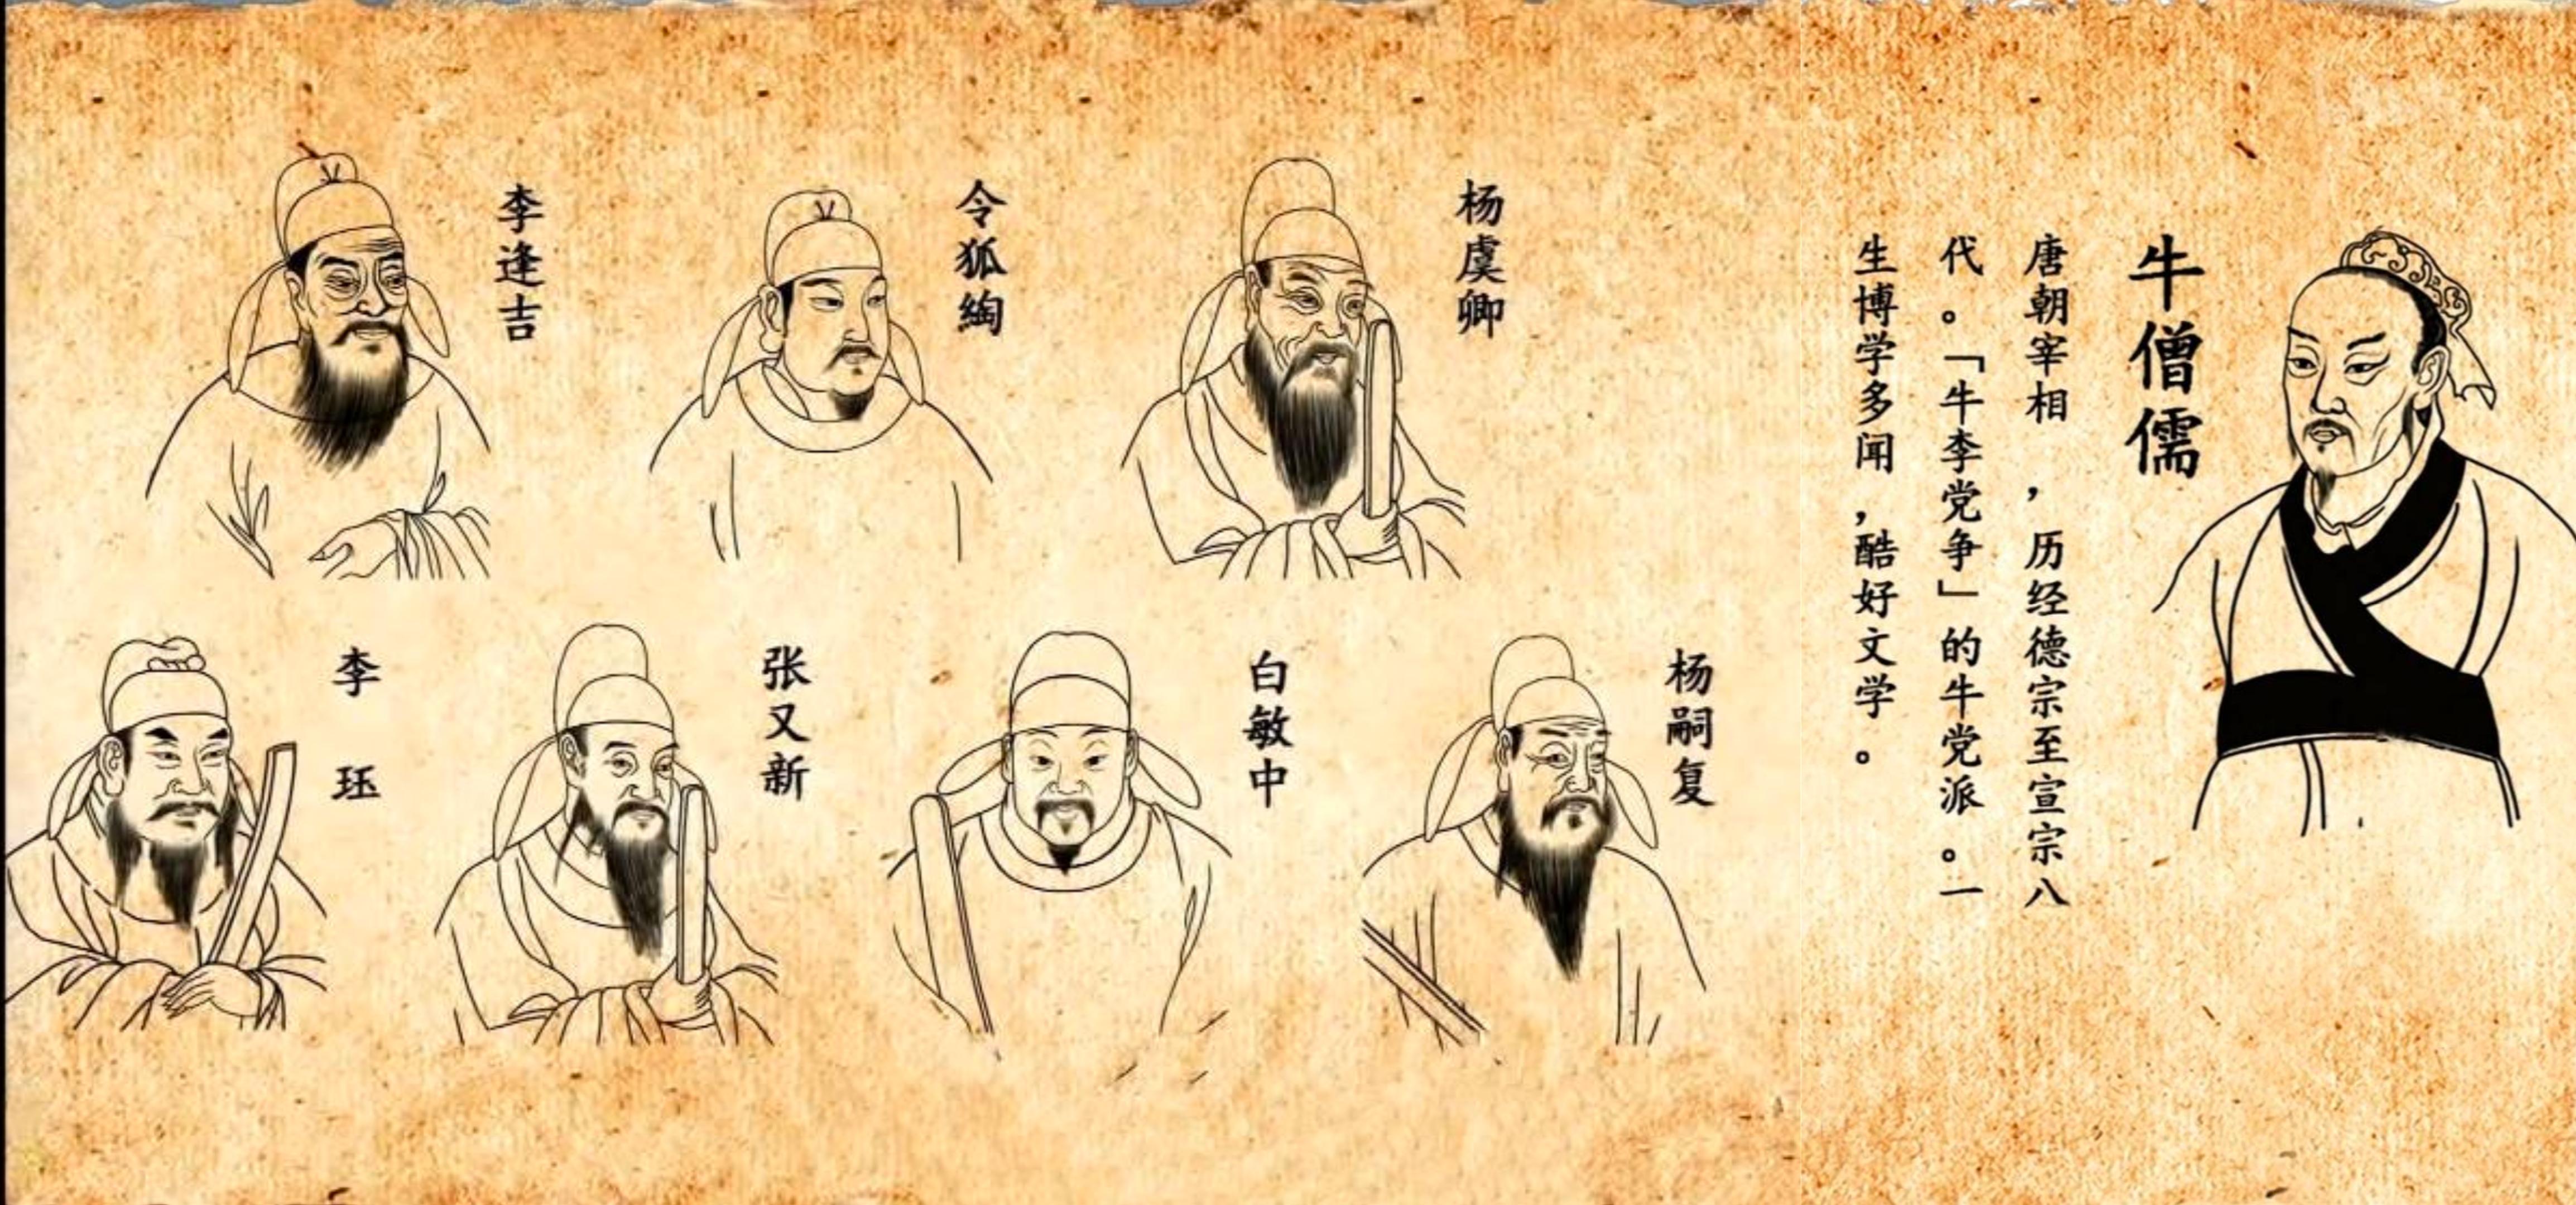 牛僧儒
唐朝宰相,历经德宗至宣宗八
代。「牛李党争」的牛党派。一
生博学多闻,酷好文学。
杨虞卿
令狐绹
李逢吉
杨嗣复
白敏中
张又新
李珏